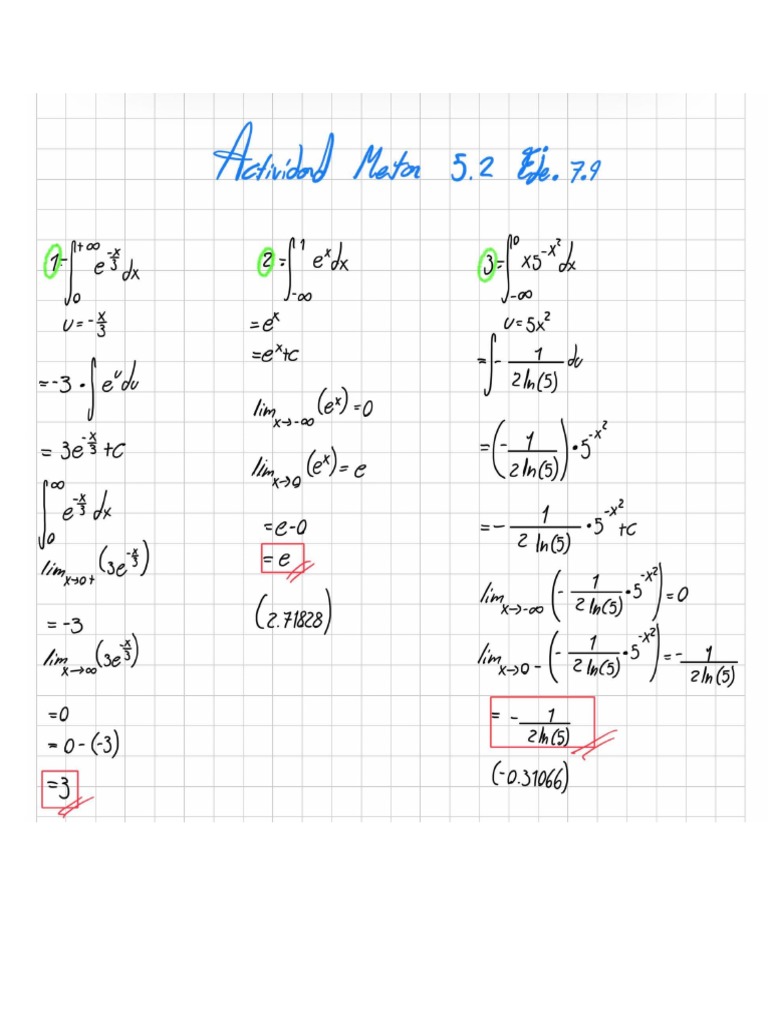 Actividad Mentor 5.2 Eje. 7.9
1- ∫₀^{+∞} e^{-x/3} dx
u = -x/3
= -3 · ∫ e^u du
= 3e^{-x/3} + C
∫₀^∞ e^{-x/3} dx
lim_{x→0+} (3e^{-x/3})
= -3
lim_{x→∞} (3e^{-x/3})
= 0
= 0 - (-3)
= 3
2 = ∫_{-∞}^1 e^x dx
= e^x
= e^x + C
lim_{x→-∞} (e^x) = 0
lim_{x→0} (e^x) = e
= e - 0
= e
(2.71828)
3 = ∫_{-∞}^0 x5^{-x²} dx
u = 5x²
= ∫ - 1/(2 ln(5)) du
= (- 1/(2 ln(5))) · 5^{-x²}
= - 1/(2 ln(5)) · 5^{-x²} + C
lim_{x→-∞} (- 1/(2 ln(5)) · 5^{-x²}) = 0
lim_{x→0-} (- 1/(2 ln(5)) · 5^{-x²}) = - 1/(2 ln(5))
= - 1/(2 ln(5))
(-0.31066)